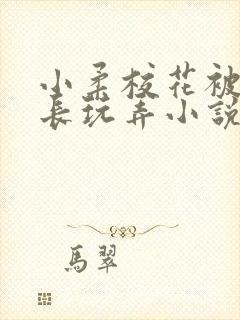 小柔校花被
長玩弄小説
馬翠